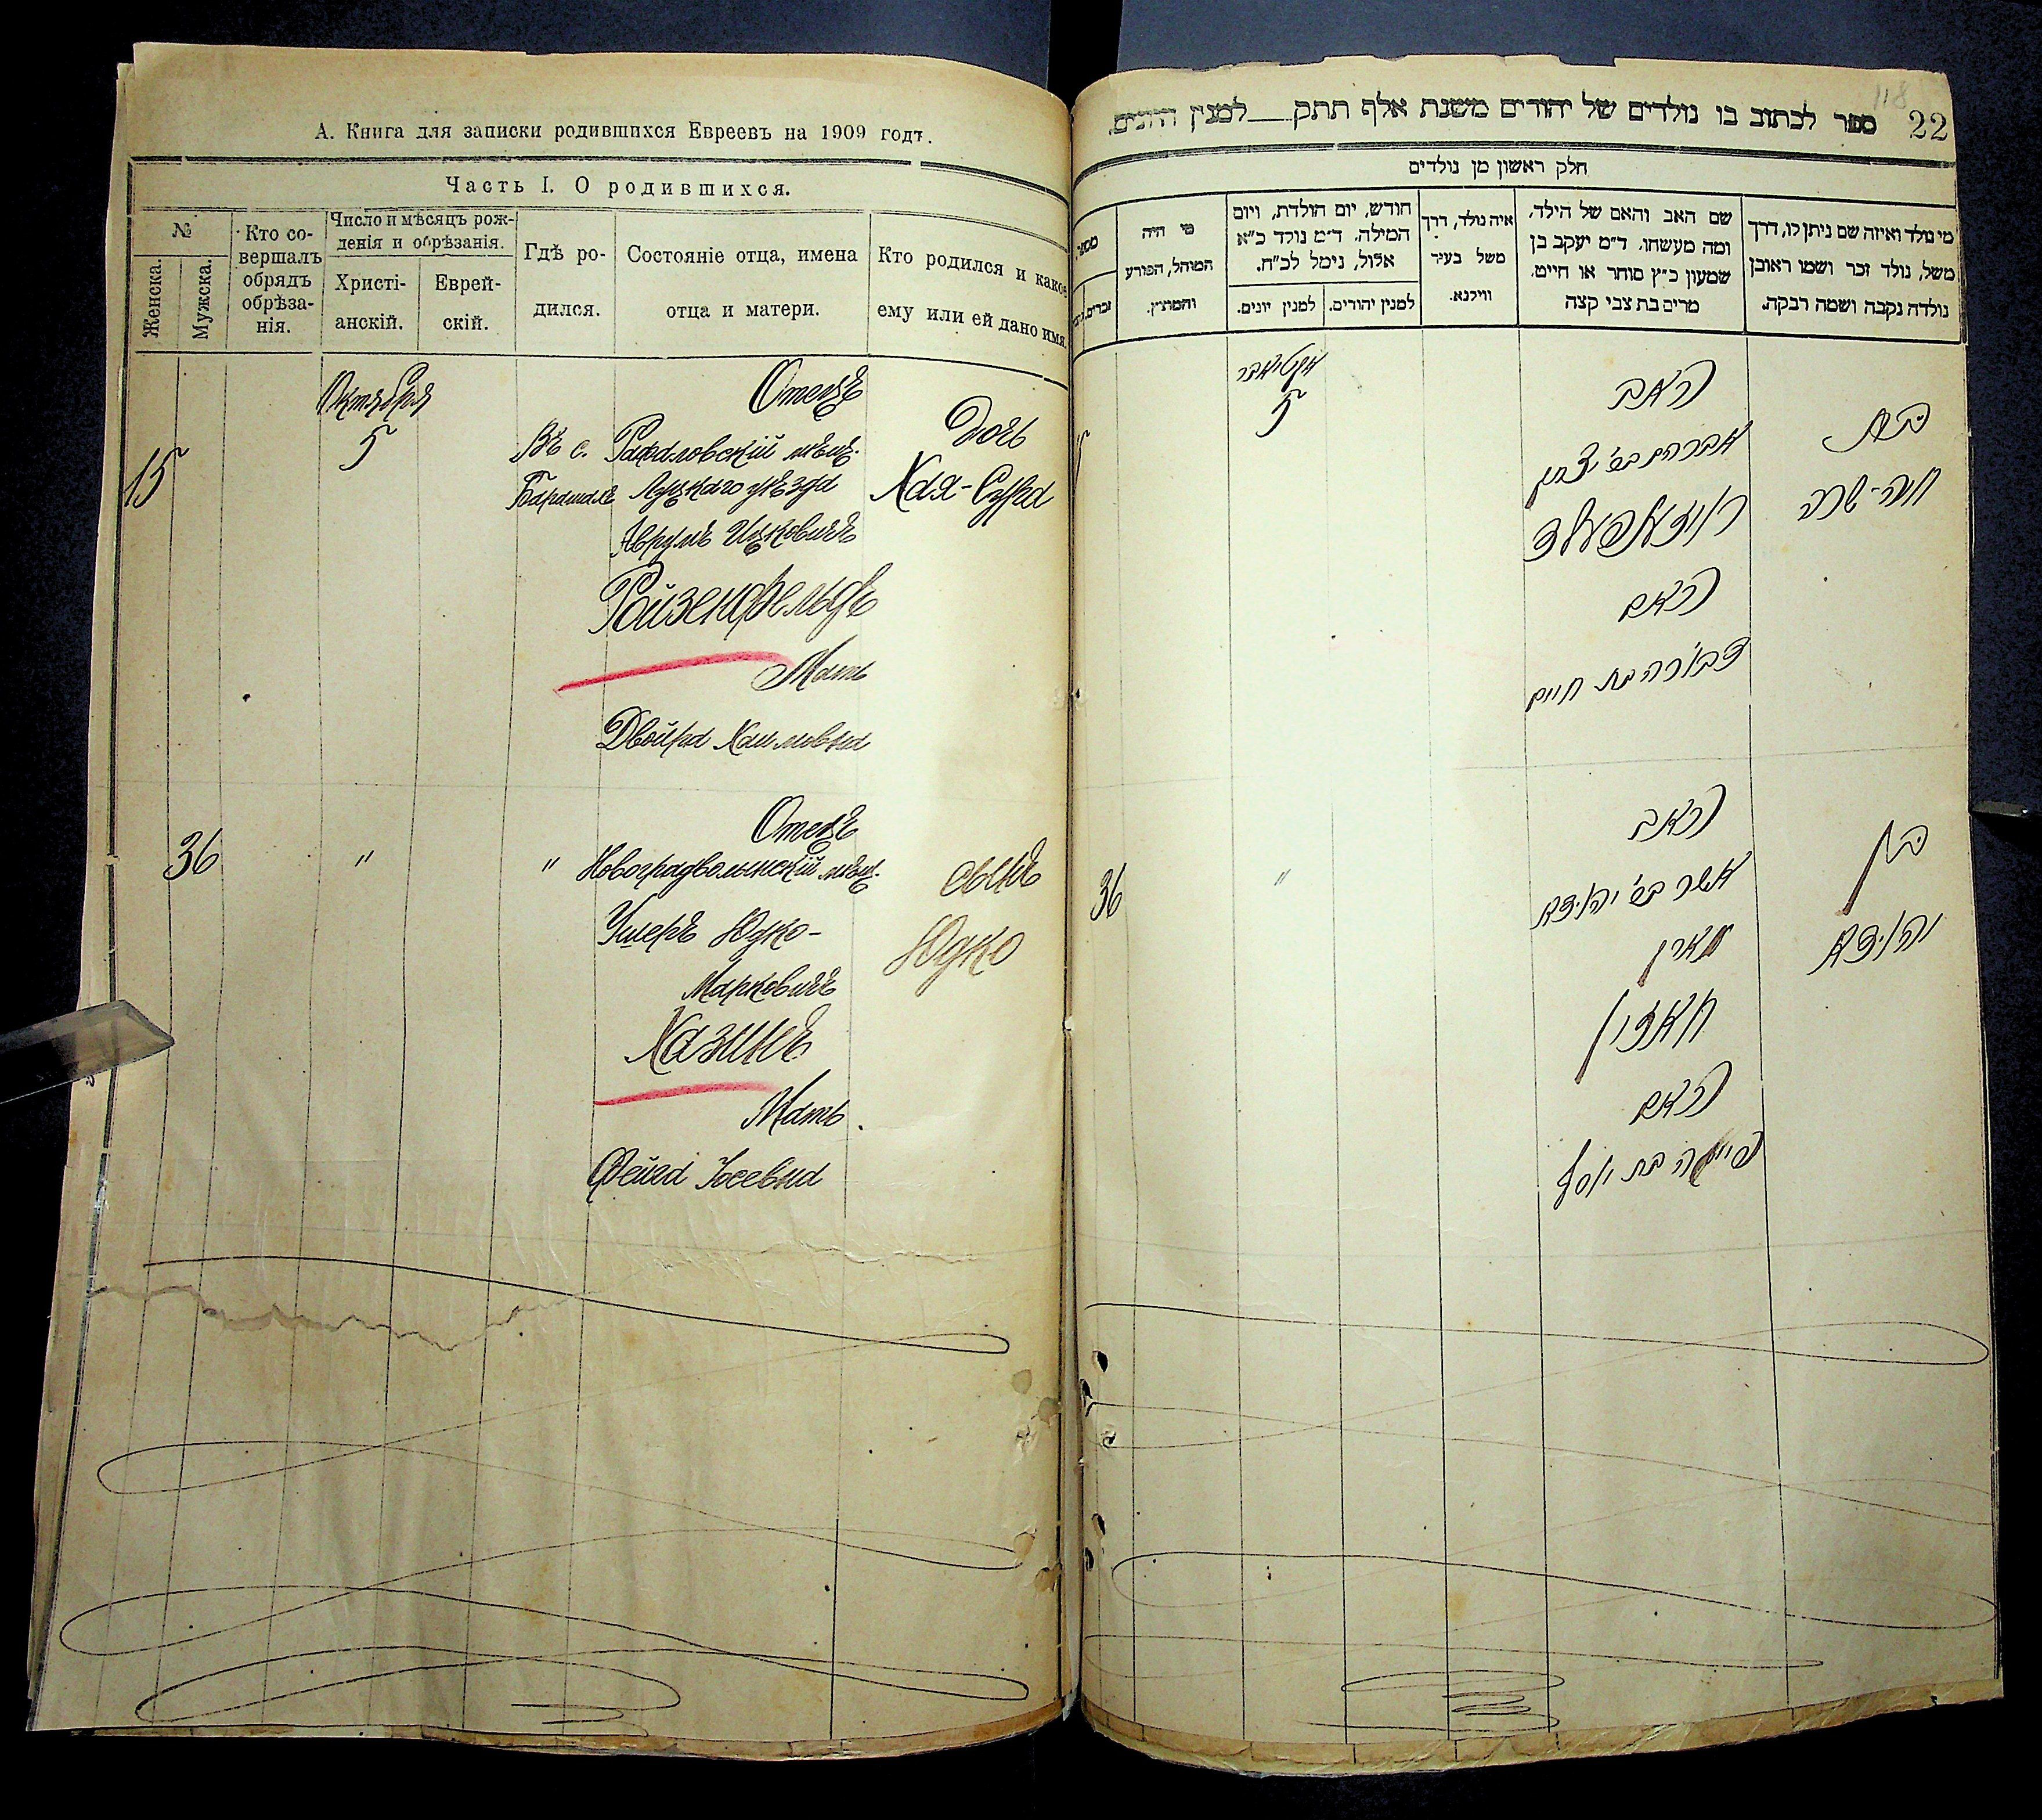 А. Книга для записки родившихся Евреевъ на 1909 годъ.
Часть I. О родившихся.
№
Женска.
Мужска.
Кто со-
вершалъ
обрядъ
обрѣза-
нія.
Число и мѣсяцъ рож-
денія и обрѣзанія.
Христі-
анскій.
Еврей-
скій.
Гдѣ ро-
дился.
Состояніе отца, имена
отца и матери.
Кто родился и какое
ему или ей дано имя.
15
Октября
5
Въ с.
Барашахъ
Отецъ
Рафаловскій мѣщ.
Луцкаго уѣзда
Аврумъ Ицковичъ
Ройзенфельдъ
Мать
Двойра Хаимовна
Дочь
Хая-Сура
36
"
"
Отецъ
Новоградволынскій мѣщ.
Ушеръ Юдко-
Марковичъ
Хазинъ
Мать.
Фейга Іосевна
сынъ
Юдко
118
22
ספר לכתוב בו נולדים של יהודים משנת אלף תתק__למנין היונים.
חלק ראשון מן נולדים
מי נולד ואיזה שם ניתן לו, דרך
משל, נולד זכר ושמו ראובן
נולדה נקבה ושמה רבקה.
שם האב והאם של הילד,
ומה מעשהו. ד״מ יעקב בן
שמעון כ״ץ סוחר או חייט.
מרים בת צבי קצה
איה נולד, דרך
משל בעיר
ווילנא.
חודש, יום הולדת, ויום
המילה. ד״מ נולד כ״א
אלול, נימל לכ״ח.
למנין יהודים.
למנין יונים.
מי היה
המוהל, הפורע
והמוצץ.
מספר
זכרים.
בת
חיה-שרה
האב
אברהם בר׳ יצחק
רויזענפעלד
האם
דבורה בת חיים
אקטיאבר
5
בן
יהודא
האב
אשר בר׳ יהודא
חאזין
האם
פייגה בת יוסף
"
36